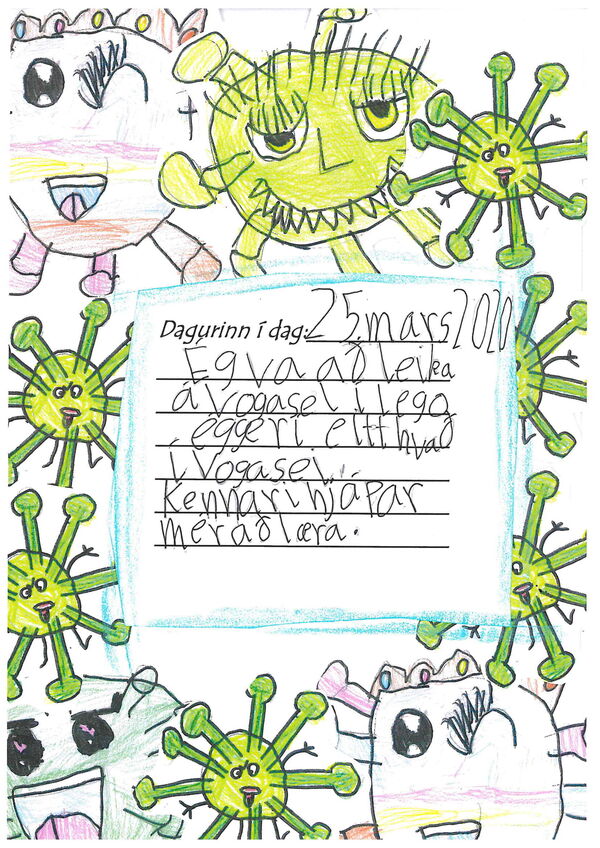 Dagurinn í dag: 25. mars 2020
Ég va að leika
á vogasel í lego
éggeri eitthvað
í Vogasel.
Kennari hjápar
mér að læra.